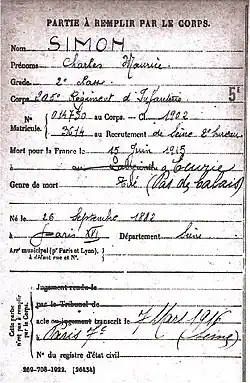 PARTIE À REMPLIR PAR LE CORPS.
Nom SIMON
Prénoms Charles Maurice
Grade 2e
Corps 205e Régiment d'Infanterie
5e
N° 014730 au Corps. — Cl. 1902
Matricule. 3614 au Recrutement de Seine
Mort pour la France le 15 Juin 1915
à
Genre de mort Tué (Pas de Calais)
Né le 26 Septembre 1882
à Paris XVI Département Seine
Arrt municipal (pr Paris et Lyon),
à défaut rue et N°.
Cette partie n'est pas à remplir par le Corps.
Jugement rendu le
par le Tribunal de
acte ou jugement transcrit le 7 Mars 1916
à Paris 7e (Seine)
N° du registre d'état civil
269-708-1922. [26434]